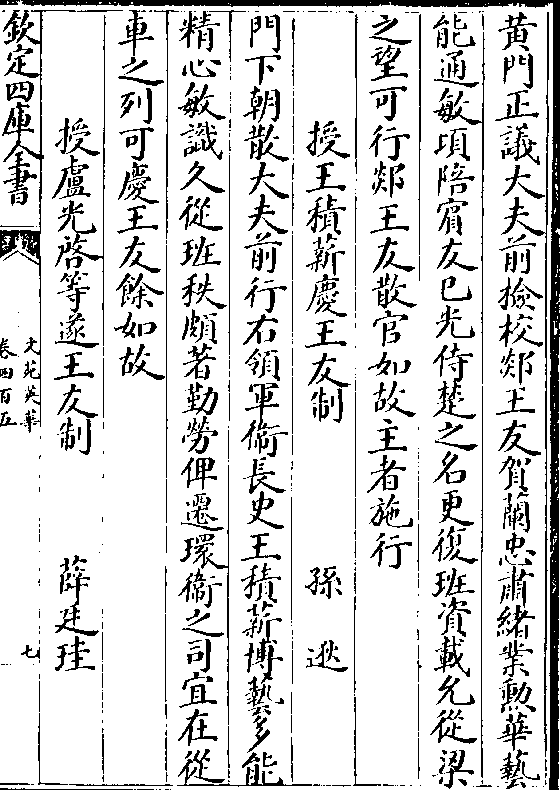 黃門正議大夫前撿校郯王友賀蘭忠肅緒業勲華藝
能通敏頃陪賔友已光侍楚之名更復班資載允從梁
之望可行郯王友散官如故主者施行
授王積薪慶王友制 孫逖
門下朝散大夫前行右領軍衛長史王積薪博藝多能
精心敏識久從班秩頗著勤勞俾遷環衛之司宜在從
車之列可慶王友餘如故
授盧光啓等遂王友制 薛廷珪
欽定四庫全書
文苑英華
卷四百五
七